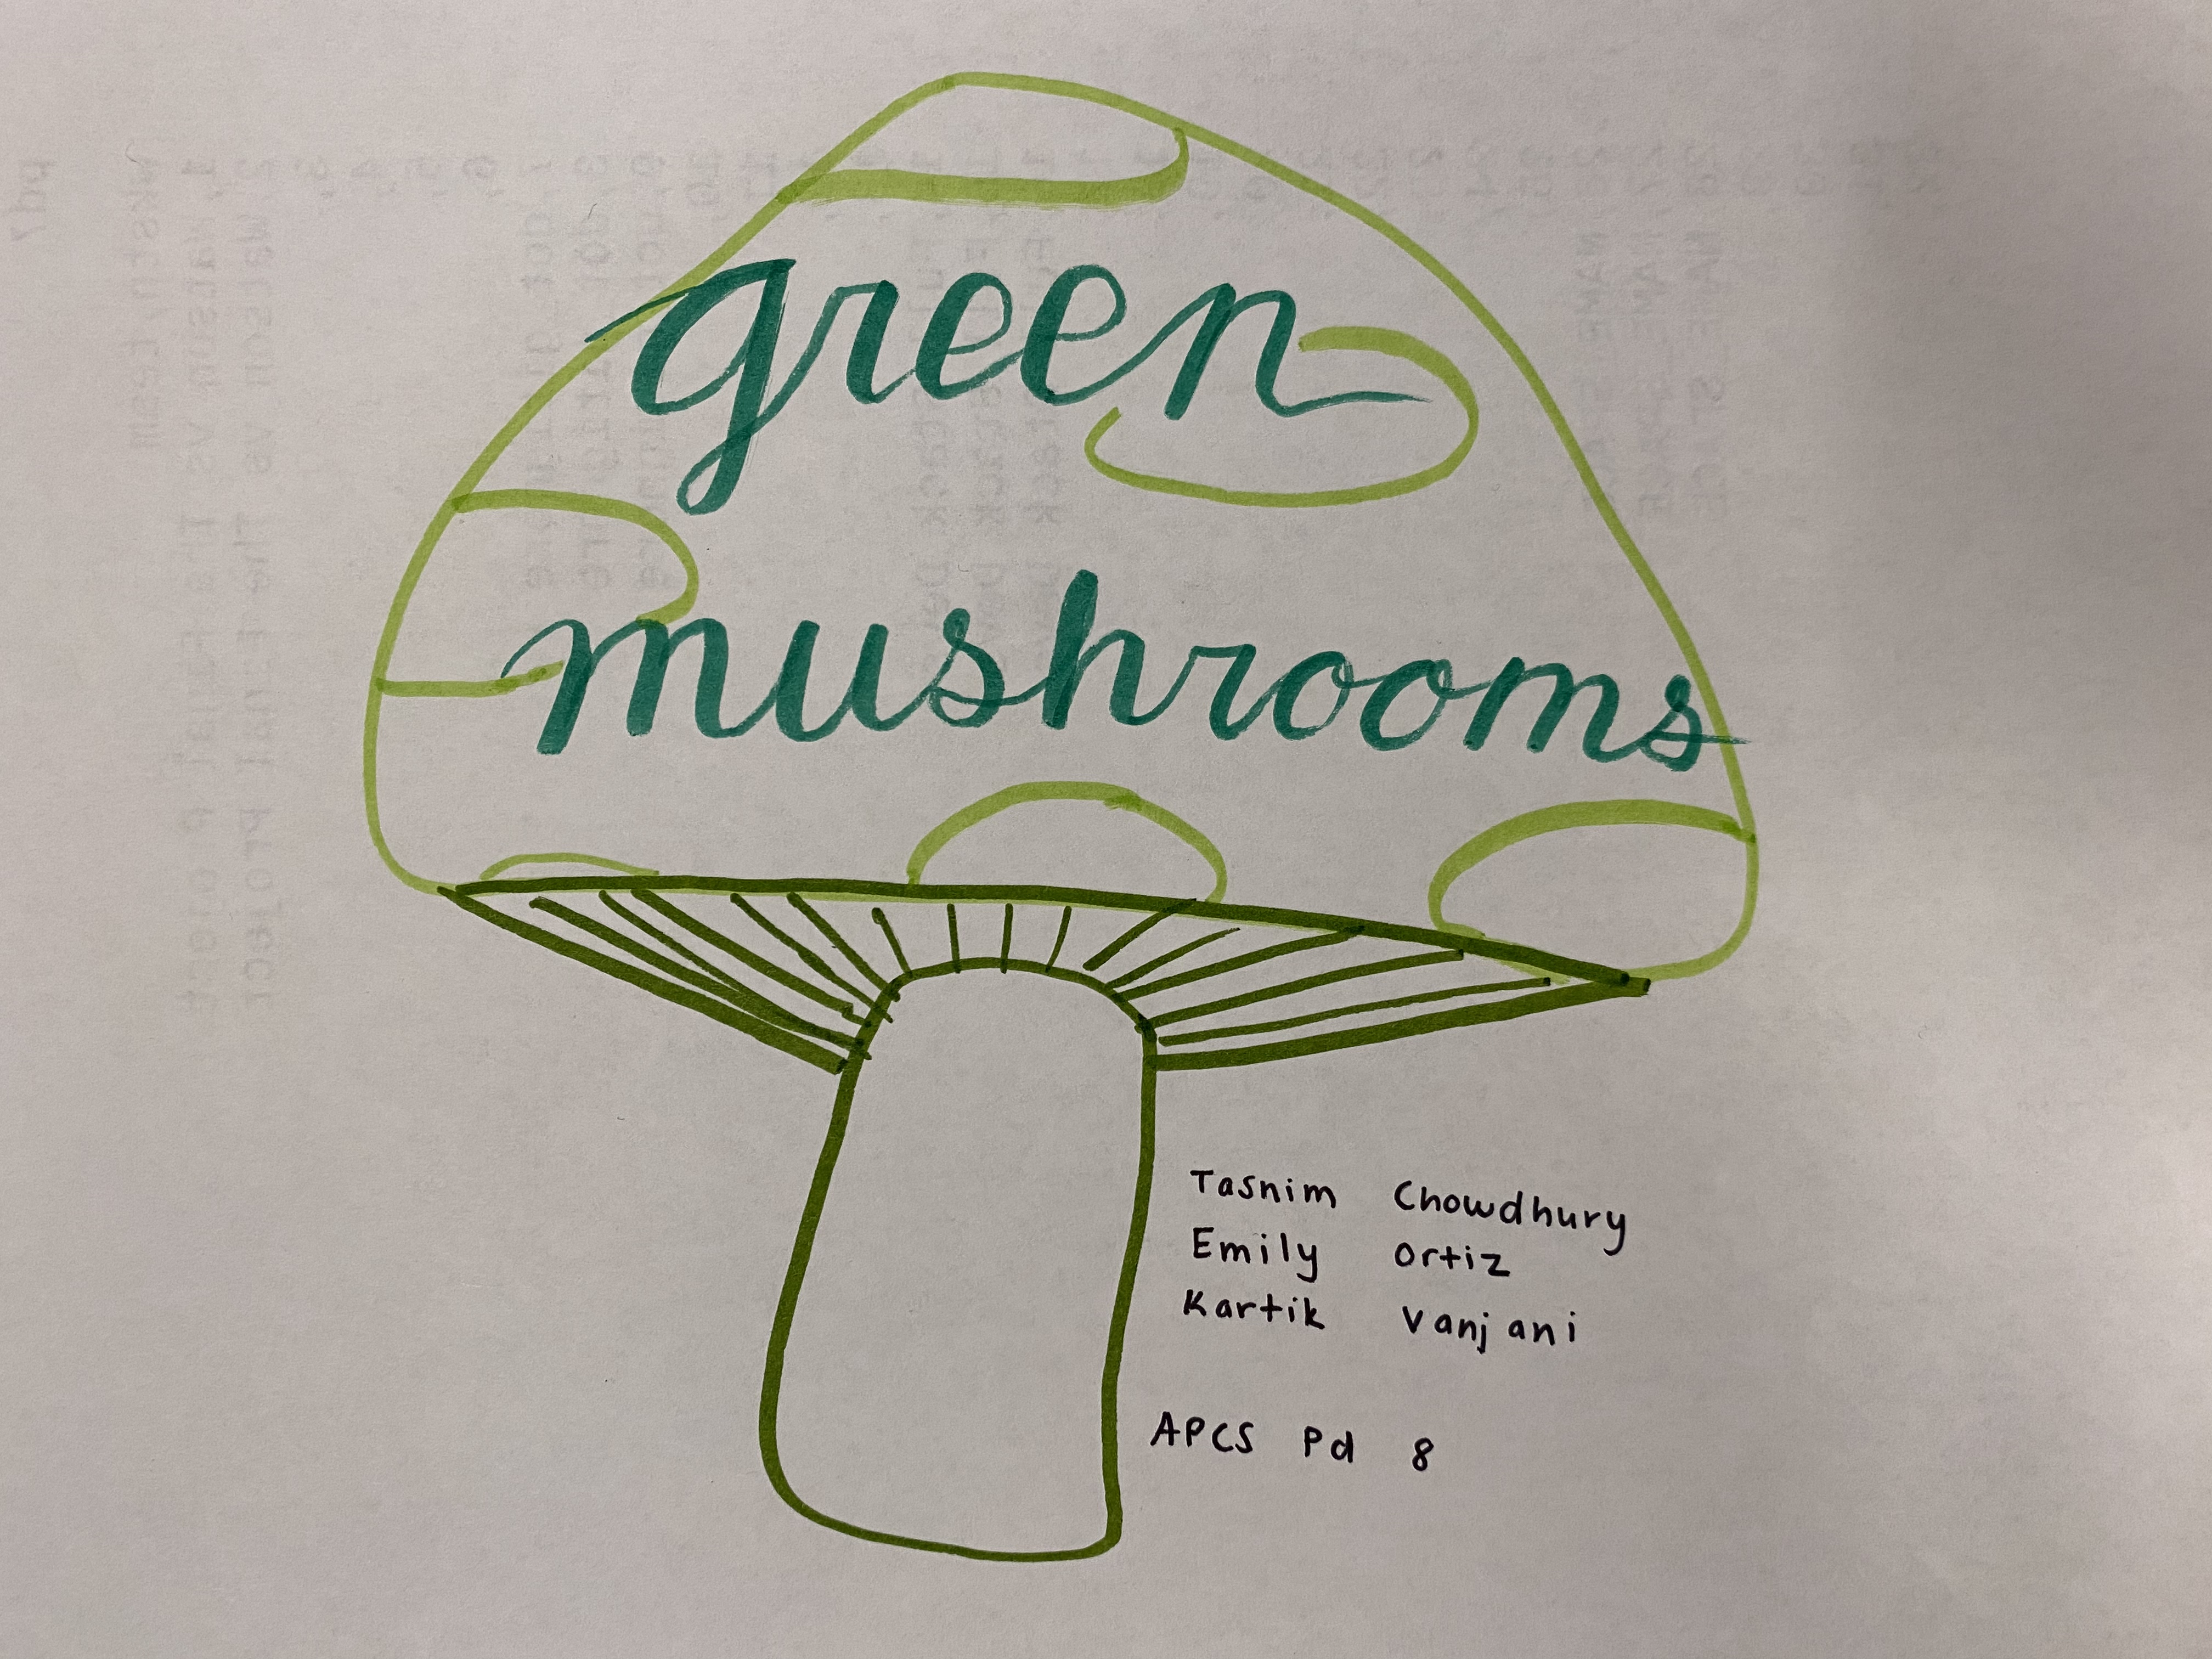 green
mushrooms
Tasnim Chowdhury
Emily Ortiz
Kartik Vanjani
APCS Pd 8